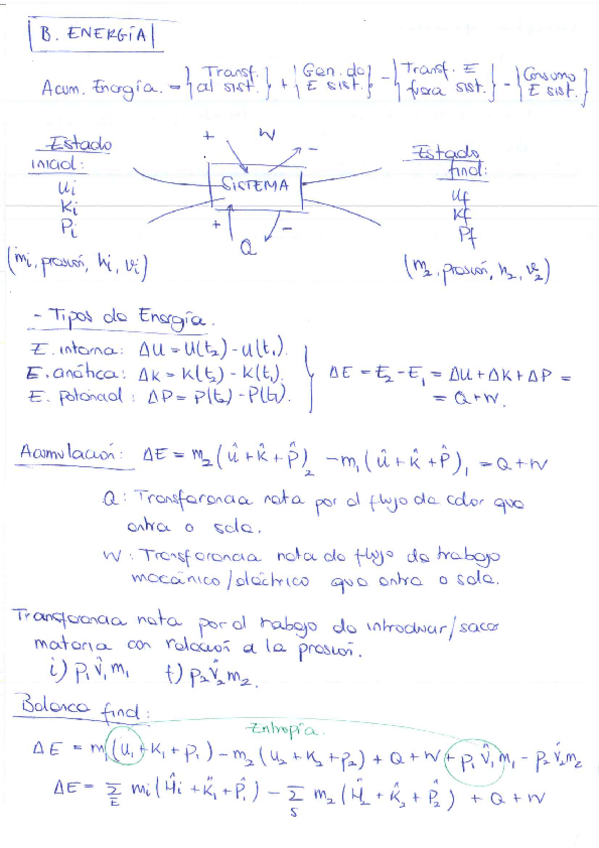 B. ENERGÍA
Acum. Energía. = {Transf. al sist.} + {Gen. de E sist.} - {Transf. E fuera sist.} - {Consumo E sist.}
Estado inicial:
Ui
Ki
Pi
(mi, presión, hi, vi)
+ W -
SISTEMA
+ Q -
Estado final:
Uf
Kf
Pf
(m2, presión, h2, v2)
- Tipos de Energía.
E. interna: ΔU = U(t2) - U(t1).
E. cinética: ΔK = K(t2) - K(t1).
E. potencial: ΔP = P(t2) - P(t1).
ΔE = E2 - E1 = ΔU + ΔK + ΔP =
= Q + W.
Acumulación: ΔE = m2 (û + K̂ + P̂)2 - m1 (û + K̂ + P̂)1 = Q + W
Q: Transferencia neta por el flujo de calor que
entra o sale.
W: Transferencia neta de flujo de trabajo
mecánico/eléctrico que entra o sale.
Transferencia neta por el trabajo de introducir/sacar
materia con relación a la presión.
i) p1 v̂1 m1 t) p2 v̂2 m2.
Balance final:
Entropía.
ΔE = m1 (U1 + K1 + P1) - m2 (U2 + K2 + P2) + Q + W + p1 v̂1 m1 - p2 v̂2 m2
ΔE = Σ E mi (Ĥi + K̂1 + P̂1) - Σ S m2 (Ĥ2 + K̂2 + P̂2) + Q + W